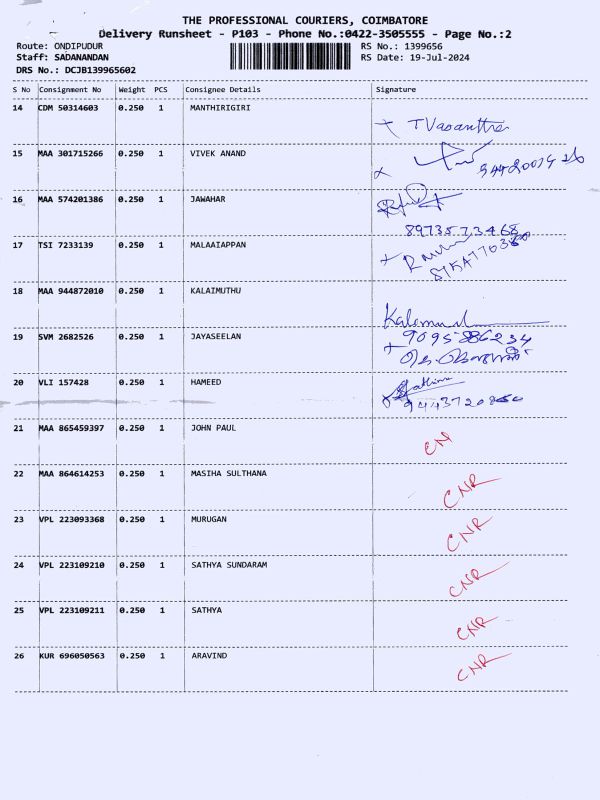 THE PROFESSIONAL COURIERS, COIMBATORE
Delivery Runsheet - P103 - Phone No.:0422-3505555 - Page No.:2
Route: ONDIPUDUR RS No.: 1399656
Staff: SADANANDAN RS Date: 19-Jul-2024
DRS No.: DCJB139965602
S No Consignment No Weight PCS Consignee Details Signature
14 CDM 50314603 0.250 1 MANTHIRIGIRI
TVasantha
15 MAA 301715266 0.250 1 VIVEK ANAND
16 MAA 574201386 0.250 1 JAWAHAR
8973573468
17 TSI 7233139 0.250 1 MALAAIAPPAN
18 MAA 944872010 0.250 1 KALAIMUTHU
19 SVM 2682526 0.250 1 JAYASEELAN
9095886234
20 VLI 157428 0.250 1 HAMEED
21 MAA 865459397 0.250 1 JOHN PAUL
CN
22 MAA 864614253 0.250 1 MASIHA SULTHANA
CNR
23 VPL 223093368 0.250 1 MURUGAN
CNR
24 VPL 223109210 0.250 1 SATHYA SUNDARAM
CNR
25 VPL 223109211 0.250 1 SATHYA
CNR
26 KUR 696050563 0.250 1 ARAVIND
CNR